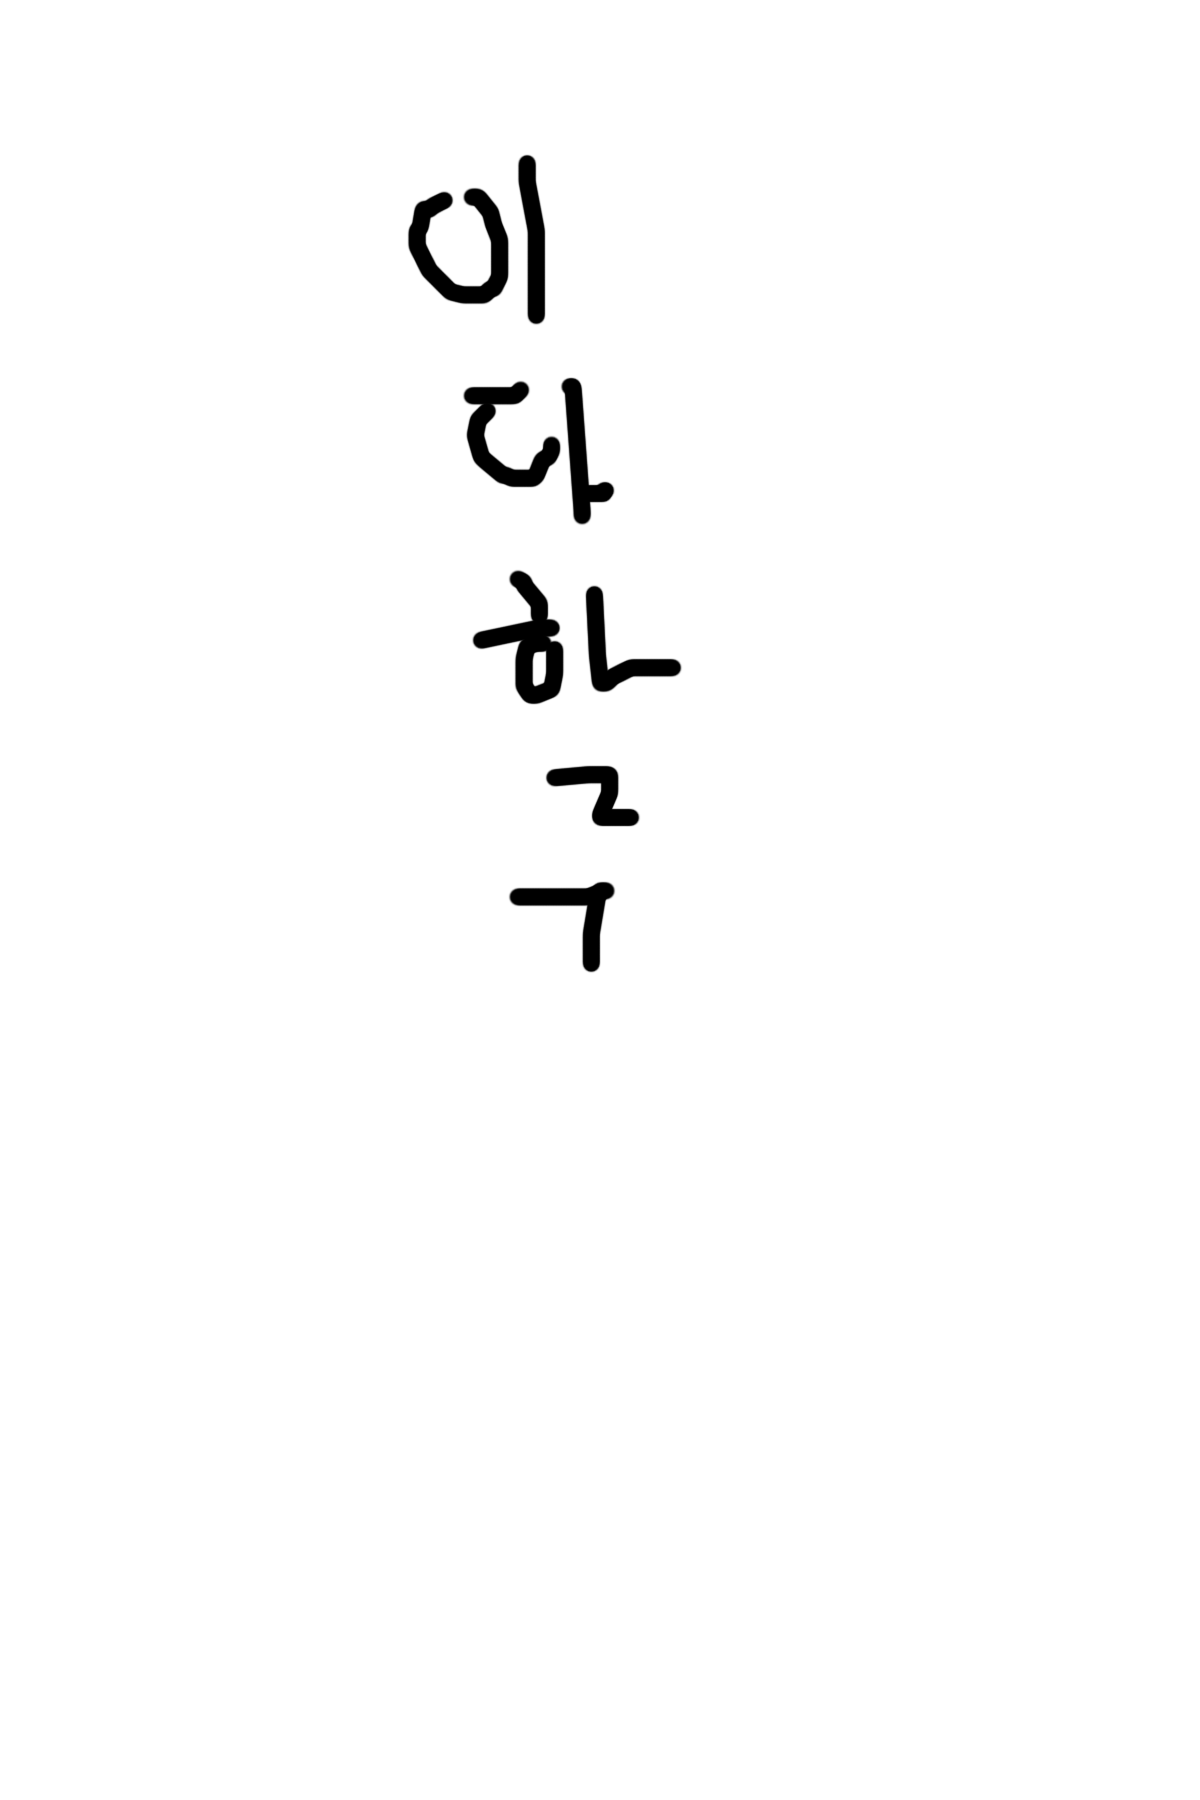 이
다
하
ㄹ
ㄱ